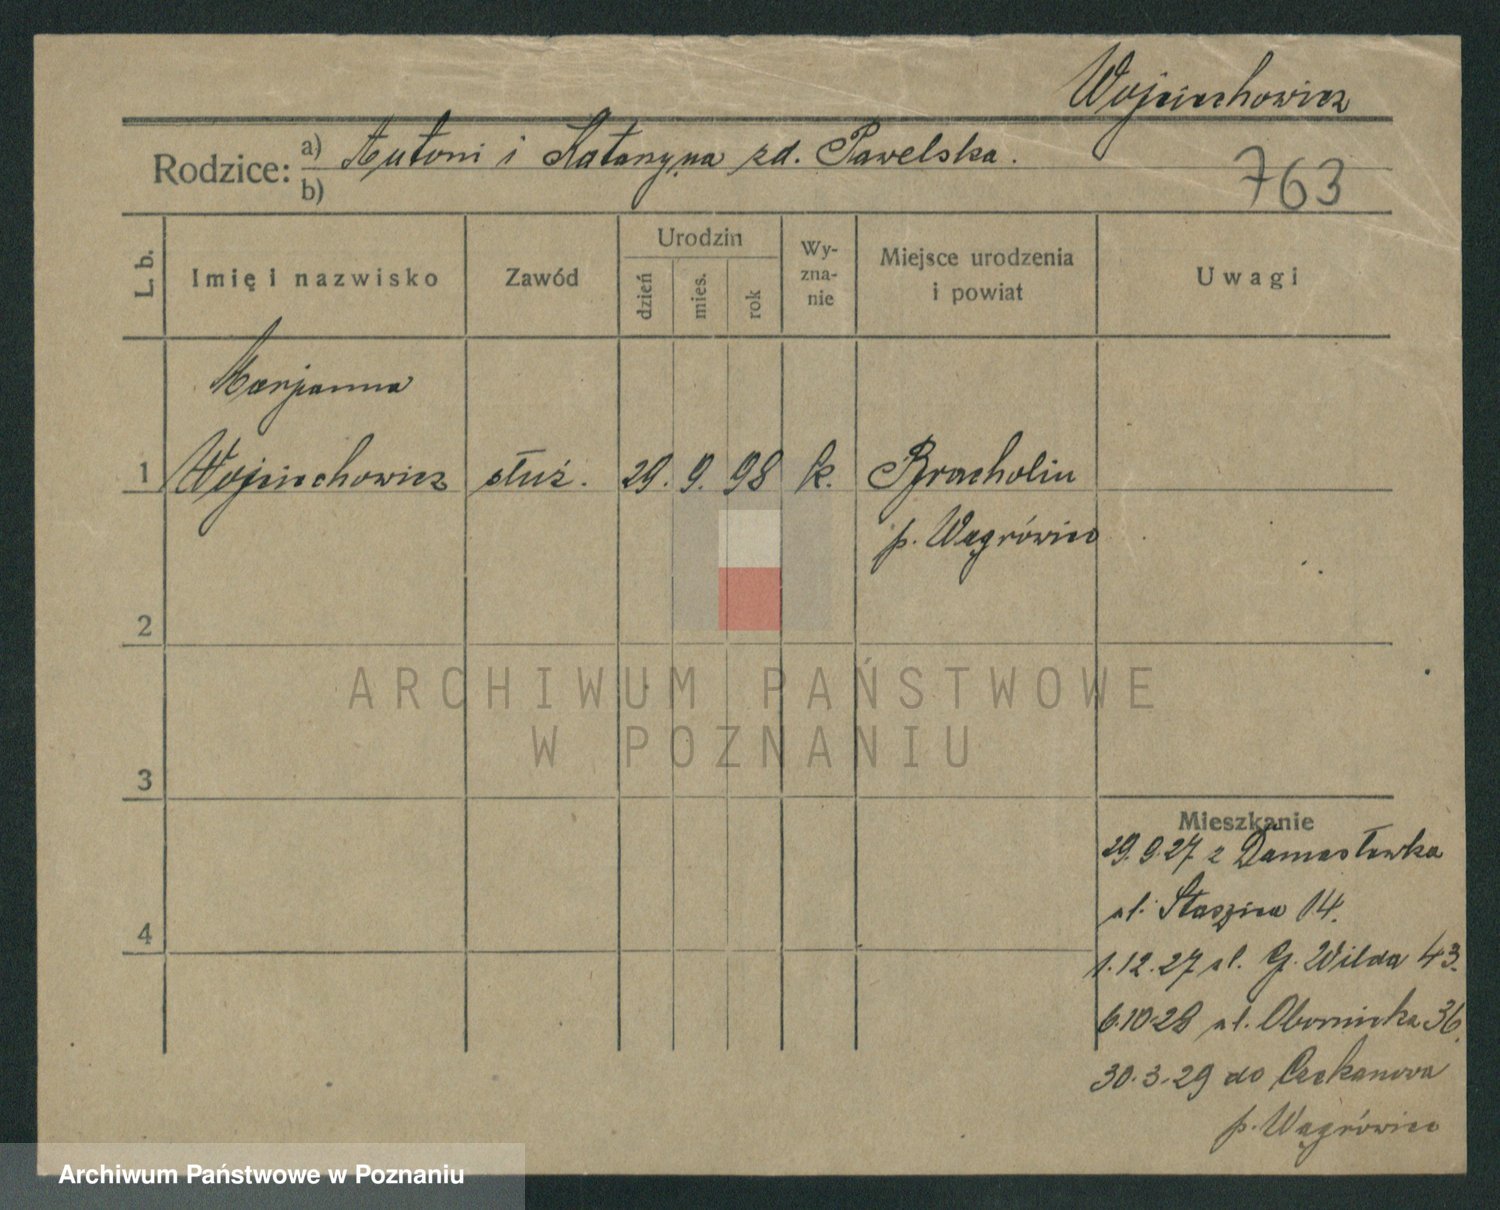 Wojciechowicz
Rodzice: a) Antoni i Katarzyna zd. Pawelska.
b)
763
L. b.
Imię i nazwisko
Zawód
Urodzin
dzień
mies.
rok
Wy-
zna-
nie
Miejsce urodzenia
i powiat
Uwagi
Marjanna
1 Wojciechowicz służ. 29. 9. 98 k. Bracholin
p. Wągrówiec
2
3
4
Mieszkanie
29.9.27 z Damasławka
ul. Staszica 14.
1.12.27 ul. G. Wilda 43.
6.10.28 ul. Obornicka 36.
30.3.29 do Czekanowa
p. Wągrówiec
ARCHIWUM PAŃSTWOWE
W POZNANIU
Archiwum Państwowe w Poznaniu